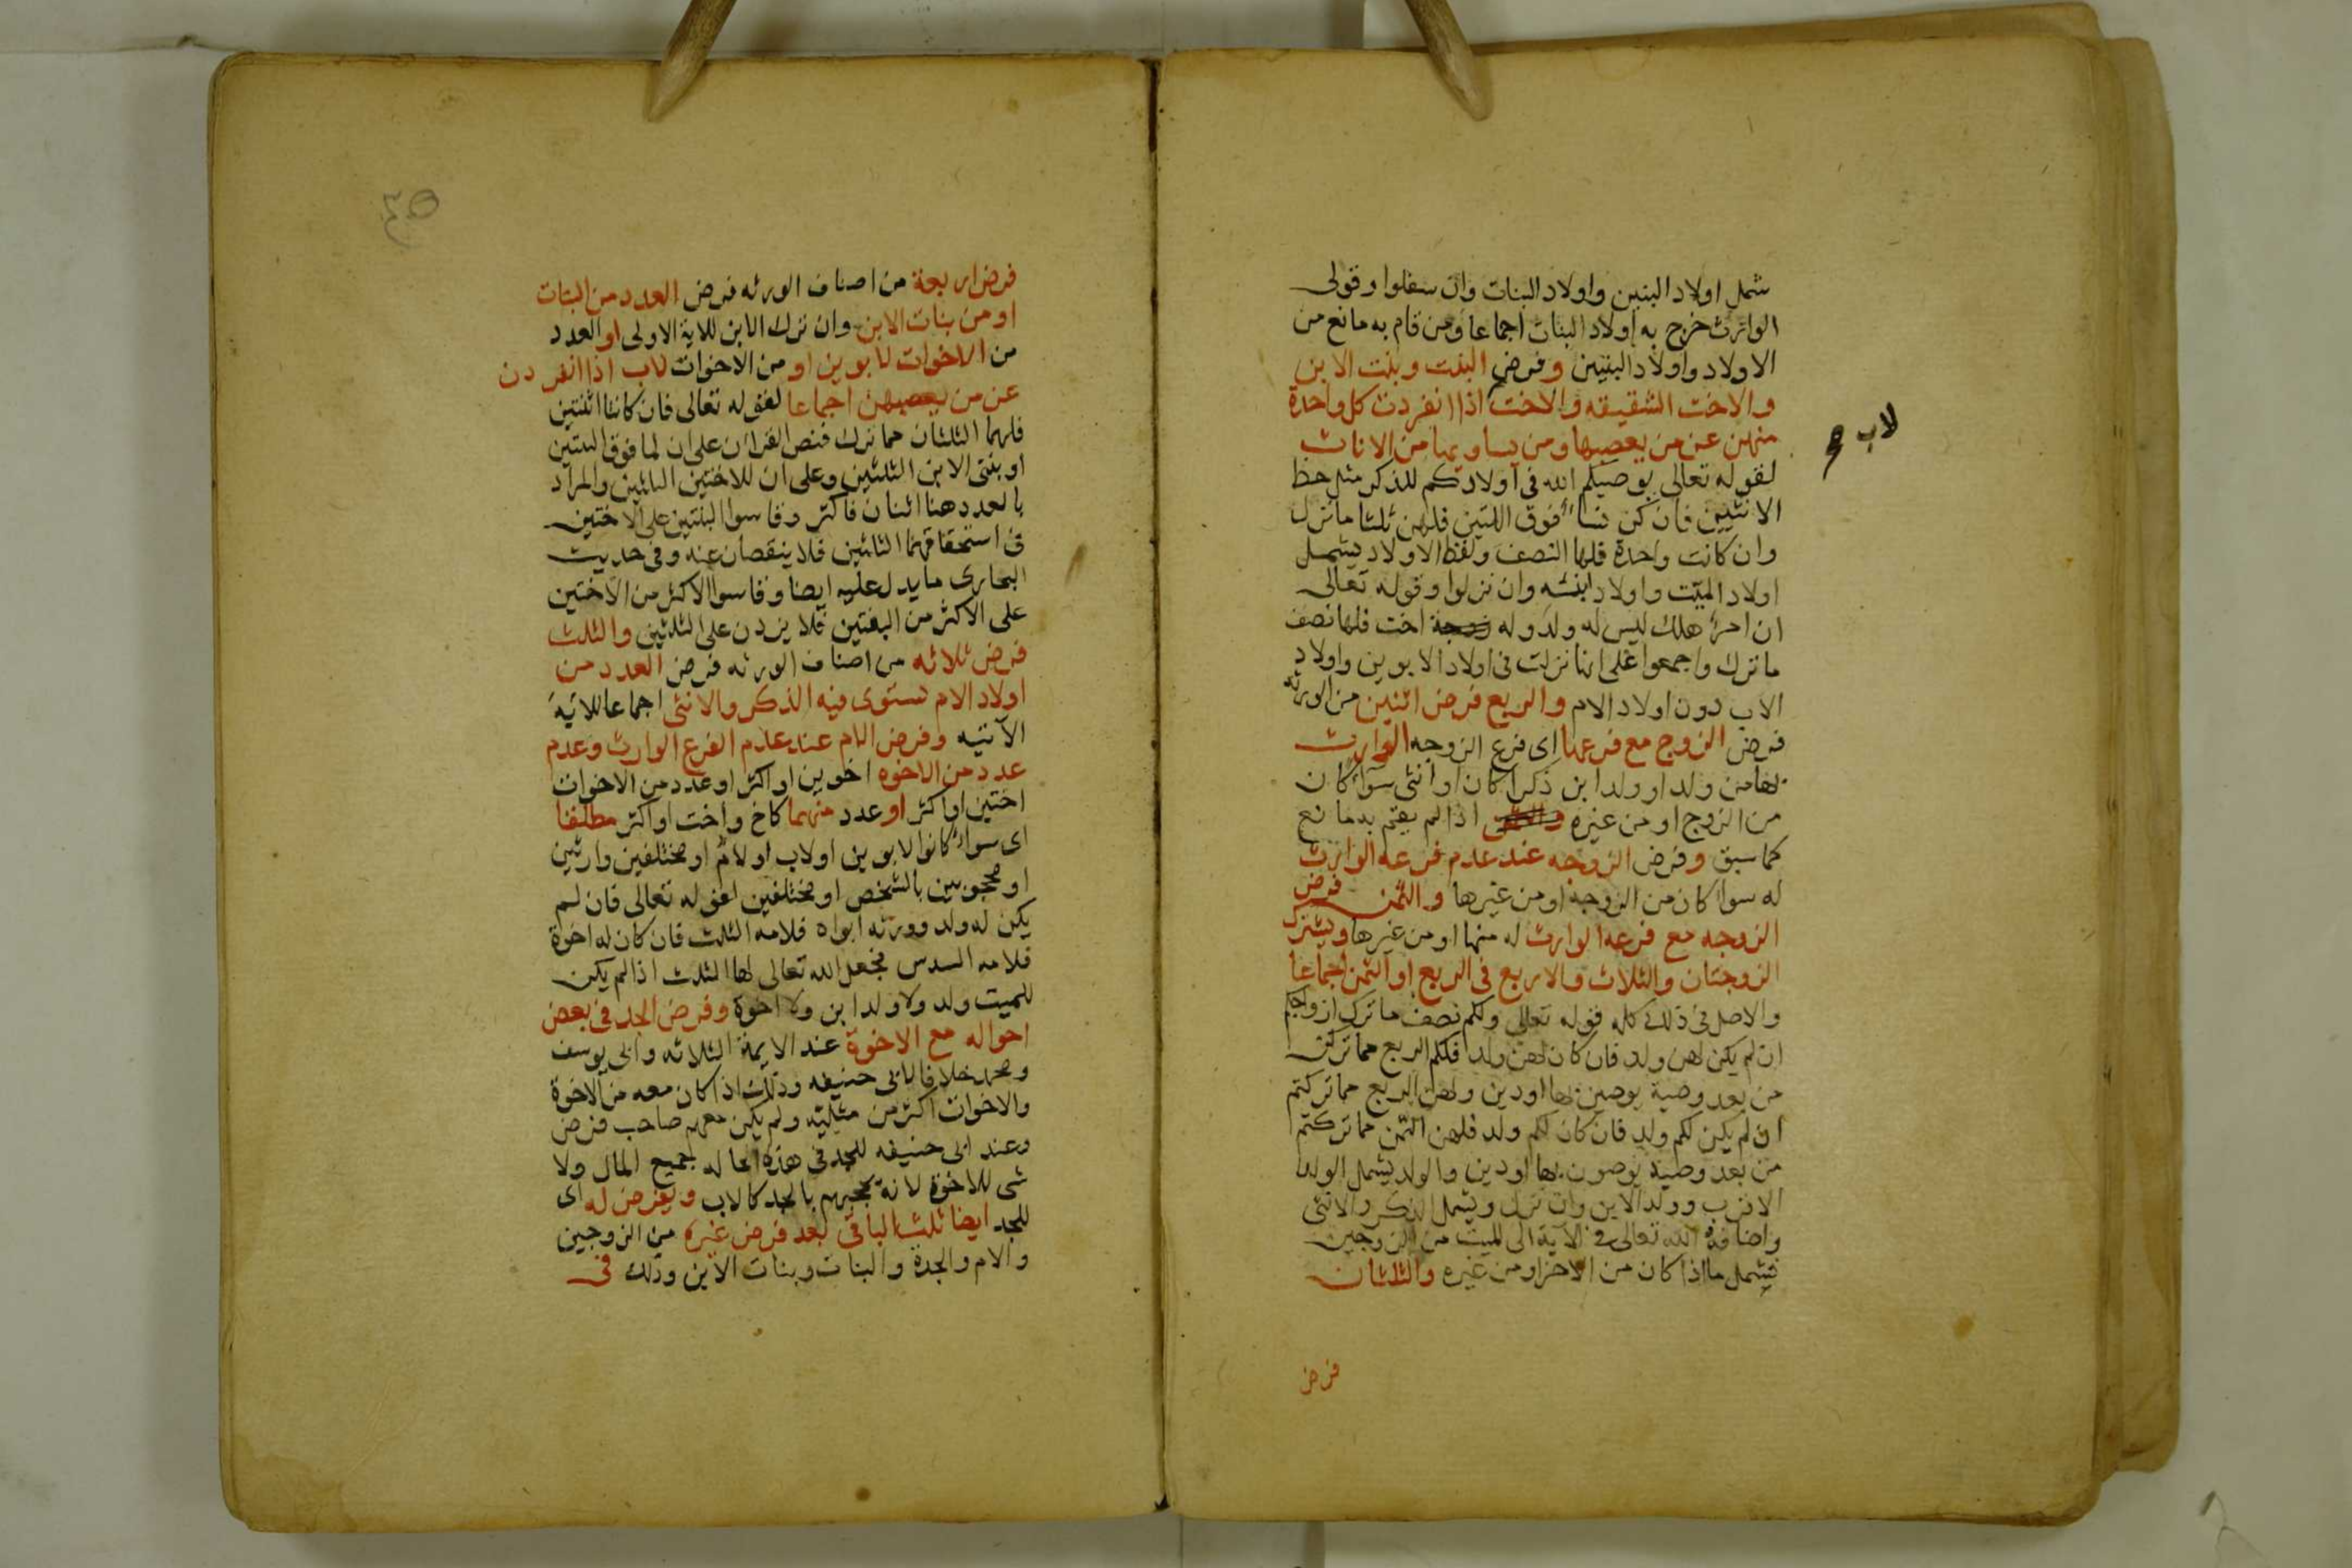 شمل اولاد البنين واولاد البنات وان سفلوا وقولى
الوارث خرج به اولاد البنات اجماعا ومن قام به مانع من
الاولاد واولاد البنين وفرض البنت وبنت الابن
والاخت الشقيقه والاخت اذا انفردت كل واحدة
لاب
منهن عن من يعصبها ومن يساويها من الاناث
لقوله تعالى يوصيكم الله فى اولادكم للذكر مثل حظ
الانثيين فان كن نساء فوق اثنتين فلهن ثلثا ما ترك
وان كانت واحدة فلها النصف ولفظ الاولاد يشمل
اولاد الميت واولاد ابنه وان نزلوا وقوله تعالى
ان امرؤ هلك ليس له ولد وله اخت فلها نصف
ما ترك واجمعوا على انها نزلت فى اولاد الابوين واولاد
الاب دون اولاد الام والربع فرض اثنين من الورثه
فرض الزوج مع فرعها اى فرع الزوجه الوارث
لها من ولد او ولد ابن ذكرا كان او انثى سواء كان
من الزوج او من غيره اذا لم يقم به مانع
كما سبق وفرض الزوجه عند عدم فرعه الوارث
له سوا كان من الزوجة او من غيرها والثمن فرض
الزوجه مع فرعه الوارث له منها او من غيرها ويشترك
الزوجتان والثلاث والاربع فى الربع او الثمن اجماعا
والاصل فى ذلك كله قوله تعالى ولكم نصف ما ترك ازواجكم
ان لم يكن لهن ولد فان كان لهن ولد فلكم الربع مما تركن
من بعد وصية يوصين بها او دين ولهن الربع مما تركتم
ان لم يكن لكم ولد فان كان لكم ولد فلهن الثمن مما تركتم
من بعد وصية توصون بها او دين والولد يشمل الولد
الاقرب وولد الابن وان نزل ويشمل الذكر والانثى
واضافه الله تعالى فى الآية الى الميت من الزوجين
فيشمل ما اذا كان من الاخر او من غيره والثلثان
فرض
فرض اربعة من اصناف الورثه فرض العدد من البنات
او من بنات الابن وان نزل الابن للاية الاولى او العدد
من الاخوات لابوين او من الاخوات لاب اذا انفردن
عن من يعصبهن اجماعا لقوله تعالى فان كانتا اثنتين
فلهما الثلثان مما ترك فنص القران على ان لما فوق البنتين
او بنتى الابن الثلثين وعلى ان للاختين الثلثين والمراد
بالعدد هنا اثنان فاكثر وقاسوا البنتين على الاختين
فى استحقاقهما الثلثين فلا ينقصان عنه وفى حديث
البخارى ما يدل عليه ايضا وقاسوا الاكثر من الاختين
على الاكثر من البنتين فلا يزدن على الثلثين والثلث
فرض ثلاثه من اصناف الورثه فرض العدد من
اولاد الام تستوى فيه الذكر والانثى اجماعا للآيه
الآتيه وفرض الام عند عدم الفرع الوارث وعدم
عدد من الاخوه اخوين او اكثر او عدد من الاخوات
اختين او اكثر او عدد منهما كاخ واخت او اكثر مطلقا
اى سواء كانوا لابوين او لاب او لام او مختلفين وارثين
او محجوبين بالشخص او مختلفين لقوله تعالى فان لم
يكن له ولد وورثه ابواه فلامه الثلث فان كان له اخوة
فلامه السدس فجعل الله تعالى لها الثلث اذا لم يكن
للميت ولد ولا ولد ابن ولا اخوة وفرض الجد فى بعض
احواله مع الاخوة عند الايمة الثلاثه وابى يوسف
ومحمد خلافا لابى حنيفه وذلك اذا كان معه من الاخوة
والاخوات اكثر من مثليه ولم يكن معهم صاحب فرض
وعند ابى حنيفه للجد فى هذه الحاله جميع المال ولا
شى للاخوة لانه يحجبهم بالجد كالاب ويفرض له اى
للجد ايضا ثلث الباقى بعد فرض غيره من الزوجين
والام والجدة والبنات وبنات الابن وذلك فى